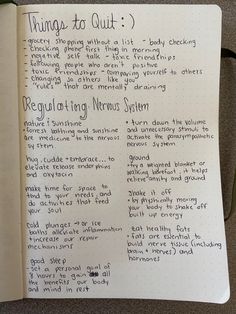 Things to Quit :)
- grocery shopping without a list - body checking
- checking phone first thing in morning
- negative self talk - toxic friendships
- following people who aren't positive
- toxic friendships - comparing yourself to others
changing so others like you
- "rules" that are mentally draining
Regulating Nervous System
nature & sunshine
- forest bathing and sunshine
are medicine to the nervous
system
hug, cuddle + embrace... to
elevate release endorphins
and oxytocin
make time for space to
tend to your needs, and
do activities that feed
your soul
cold plunges → or ice
baths alleviate inflammation
+ increase our repair
mechanisms
good sleep
- set a personal goal of
8 hours to gain all
the benefits our body
and mind in rest
+ turn down the volume
and unnecessary stimuli to
activate the parasympathetic
nervous system
ground
- try a weighted blanket or
walking barefoot, it helps
relieve anxiety and ground
shake it off
- by physically moving
your body to shake off
built up energy
eat healthy fats
- fats are essential to
build nerve tissue (including
brain + nerves) and
hormones